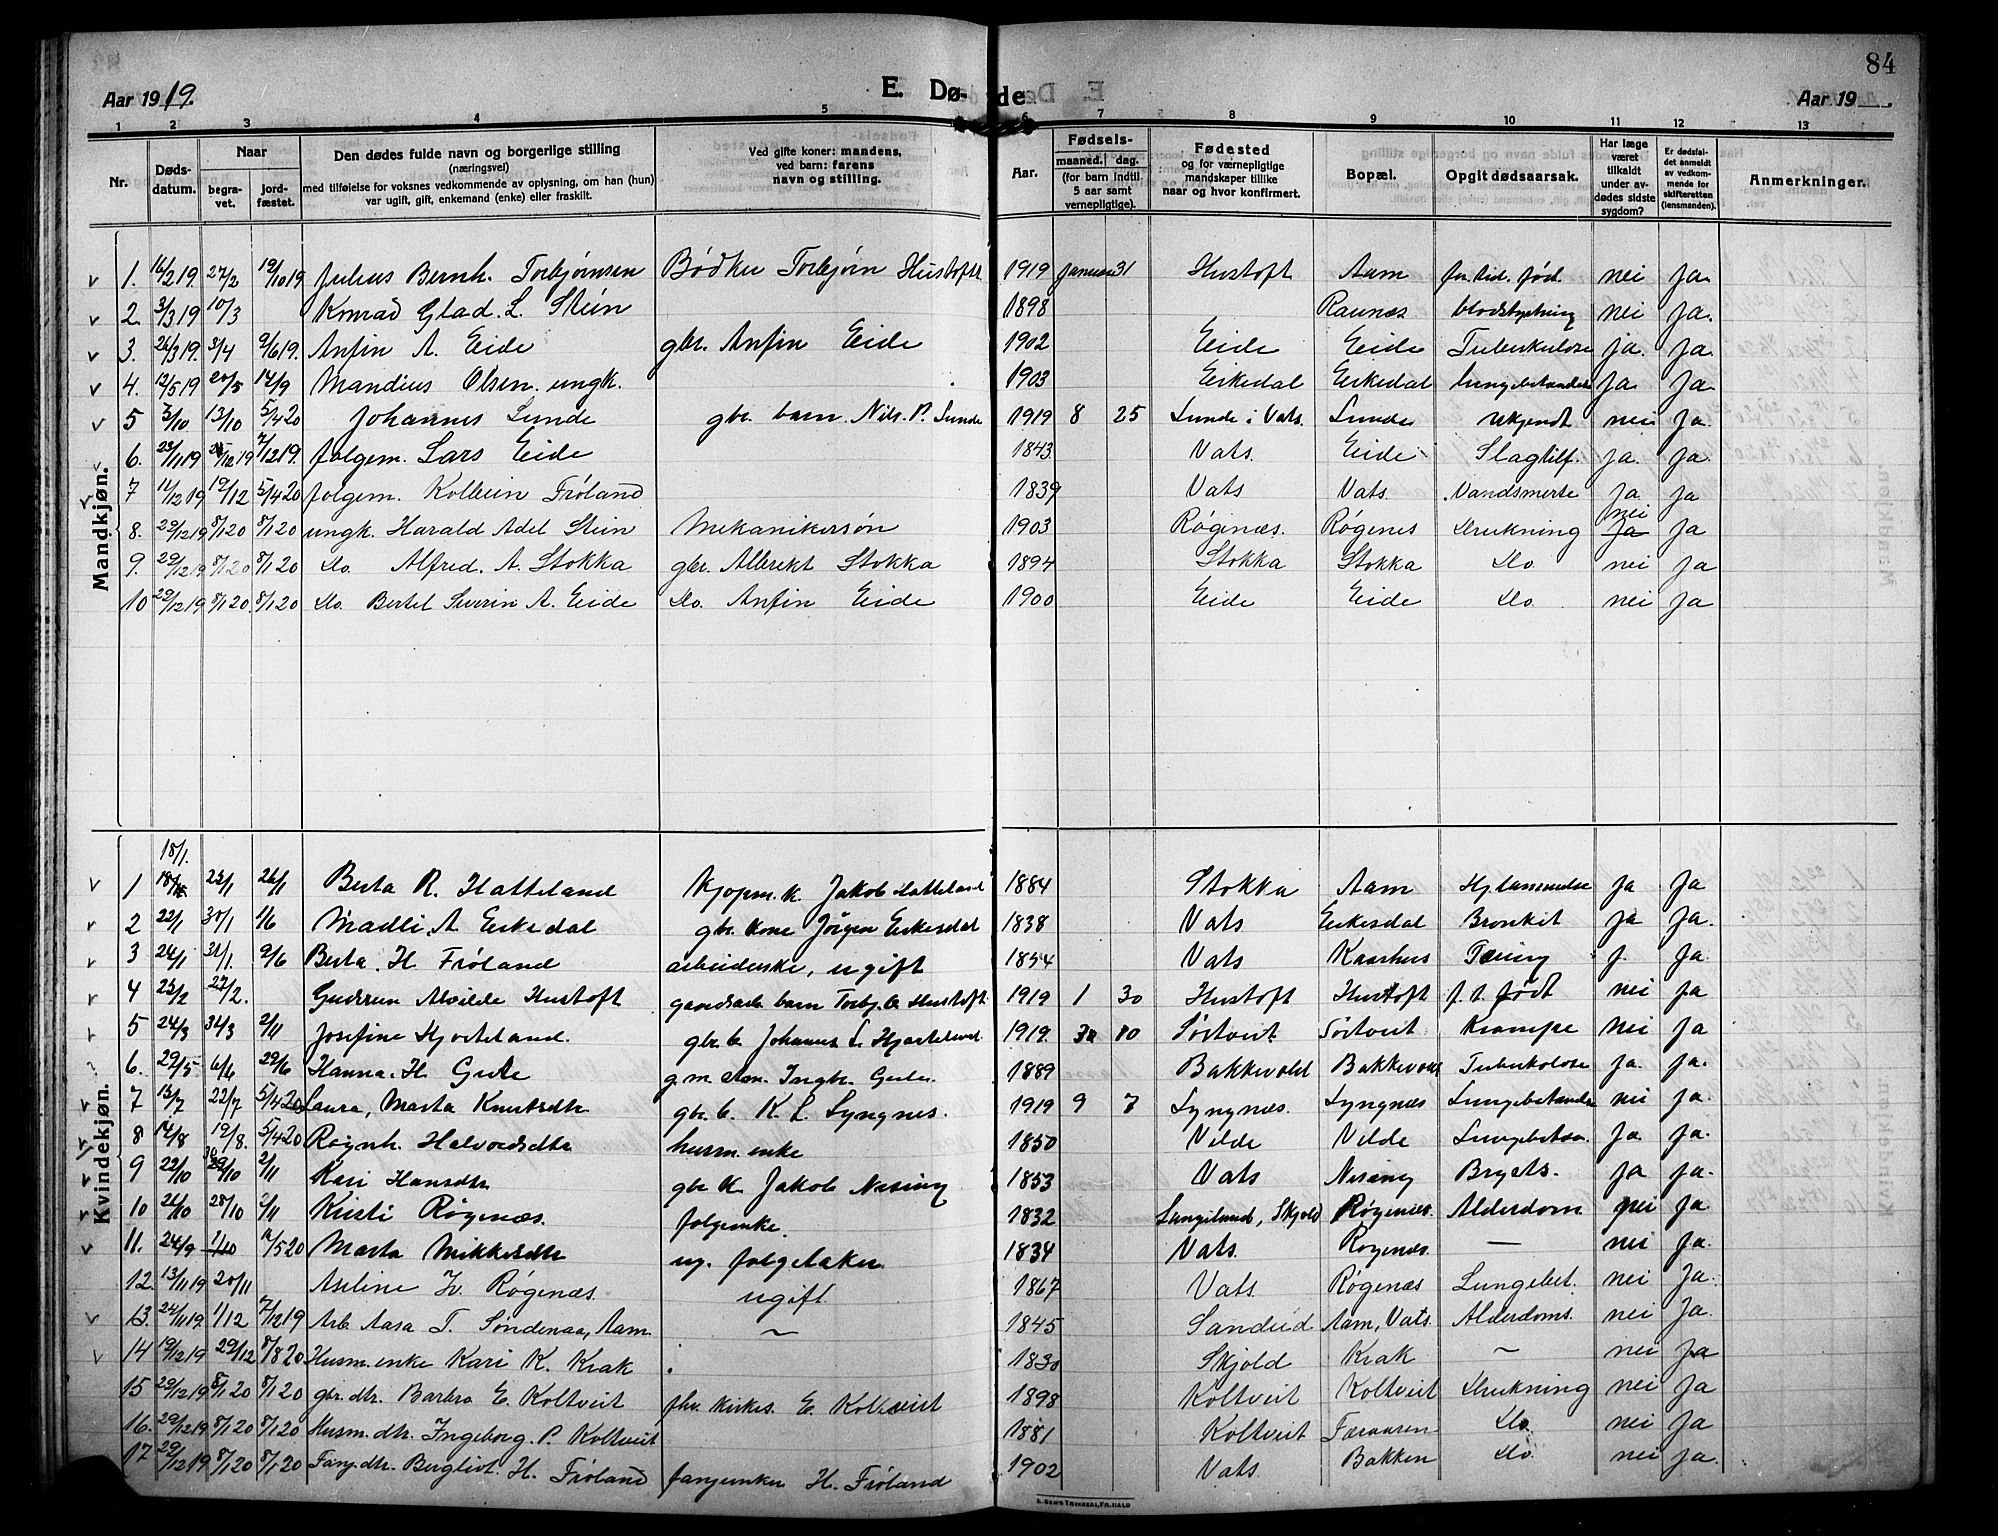 84
Aar 1919. E. Dø-de Aar 19
1 2 3 4 5 6 7 8 9 10 11 12 13
Nr. Døds-datum. Naar begra-vet. jord-fæstet. Den dødes fulde navn og borgerlige stilling (næringsvei) med tilføielse for voksnes vedkommende av oplysning, om han (hun) var ugift, gift, enkemand (enke) eller fraskilt. Ved gifte koner: mandens, ved barn: farens navn og stilling. Aar. Fødsels- maaned. dag. (for barn indtil 5 aar samt vernepligtige). Fødested og for værnepligtige mandskaper tillike naar og hvor konfirmert. Bopæl. Opgit dødsaarsak. Har læge været tilkaldt under av-dødes sidste sygdom? Er dødsfal-det anmeldt av vedkom-mende for skifteretten (lensmanden). Anmerkninger.
Mandkjøn.
1. 16/2 19. 27/2 19/10 19 Julius Bernh. Torbjørnsen Bødker Torbjørn Hustoft 1919 Januar 31 Hustoft Aam for tid. fød. nei Ja.
2. 3/3 19 10/3 Konrad Glad. L. Stein 1898 Raunæs blodstyrtning nei Ja.
3. 26/3 19. 3/4 9/6 19. Anfin A. Eide gbr. Anfin Eide 1902 Eide Eide Tuberkulose ja. Ja.
4. 12/5 19 20/5 14/9 Mandius Olsen ungk. 1903 Eikedal Eikedal lungebetændelse Ja Ja
5 3/10 13/10 5/4 20 Johannes Lunde gbr. barn. Nils. P. Lunde 1919 8 25 Lunde i Vats. Lunde ukjendt nei Ja.
6. 23/11 19 12 19 7/12 19. folgem. Lars Eide 1843 Vats. Eide Slagtilf. ja. Ja.
7 11/12 19 19/12 5/4 20 folgem. Kolbein Frøland 1839 Vats Vats. Vandsmerte Ja Ja
8. 29/12 19 8/1 20 8/1 20 ungk. Harald Adel Stein Mekanikersøn 1903 Røgenæs. Røgenes Drukning nei Ja Ja
9. 29/12 19 8/1 20 8/1 20 Do. Alfred. A. Stokka gbr. Albrekt Stokka 1894 Stokka Stokka Do. nei Ja
10 29/12 19 8/1 20 8/1 20 Do. Bertel Severin A. Eide Do. Anfin Eide 1900 Eide Eide Do. nei Ja
Kvindekjøn.
18/1.
1 18/ 23/1 26/1 Berta R. Hatteland Kjøpm. k. Jakob Hatteland 1884 Stokka Aam Hj. Ja Ja
2 22/1 30/1 1/6 Madli A. Eikesdal gbr. kone Jørgen Eikesdal 1838 Vats Eikesdal Bronkit Ja Ja.
3 24/1 31/1. 9/6 Berta. H. Frøland arbeiderske, ugift 1854 Vats Kaarhus Tæring j. Ja.
4 23/2 27/2. Gudrun Alvilde Hustoft gaardsarb. barn Torbj. B. Hustoft 1919 1 30 Hustoft Hustoft f. t. født nei Ja
5 24/3 31/3 2/11 Josefine Hjorteland. gbr. b. Johannes L. Hjorteland 1919. 10 Sørtveit Sørtveit Krampe nei Ja
6. 29/5 6/6 29/6 Hanna. H. Gute g. m. Am. Ingbr. Gute. 1889 Bakkevold Bakkevold Tuberkolose Ja. Ja.
7 13/7 22/7 5/4 20 Laura, Marta Knutsdtr gbr. b. K. L. Lyngnes. 1919 9 7 Lyngnæs. Lyngnæs Lungebetændelse nei Ja.
8 14/8 19/8. 5/4 20 Ragnh. Halvorsdtr husm. enke 1850 Vilde Vilde Lungebetæn. Ja. Ja.
9 22/10 29/10 2/11 Kari Hansdtr gbr. k. Jakob Nesing 1853 Vats Nesing Brysts. ja Ja.
10 26/10 28/10 2/11 Kristi Røgenæs. folgenke. 1832 Langeland, Skjold Røgenæs. Alderdom nei Ja.
11. 24/9 1/10 /5 20 Marta Mikkelsdtr ug. folgetaker 1834 Vats. Røgenæs. — nei Ja.
12. 13/11 19 20/11 Aseline Kr. Røgenæs. ugift 1867 Vats. Røgenæs Lungebet. nei Ja.
13. 24/11 19. 1/12 7/12 19 Arb. Aasa T. Søndenaa, Aam ~ 1845 Sandeid Aam, Vats. Alderdoms. nei Ja.
14 19/12 19 29/12 8/8 20 Husm. enke Kari K. Krak 1830 Skjold Krak ~ nei Ja
15 29/12 19 8/1 20 8/1 20 gbr. dtr. Barbro E. Koltveit fhv. kirkes. E. Koltveit 1898 Koltveit Koltveit Drukning nei Ja
16. 29/12 19 8/1 20 8/1 20 Husm. dtr. Ingeborg P. Koltveit 1881 Koltveit Do nei Ja
17 29/12 19 8/1 20 8/1 20 Fang. dtr. Bergliot H. Frøland H. Frøland 1902 Vats. Bakken Do. nei Ja.